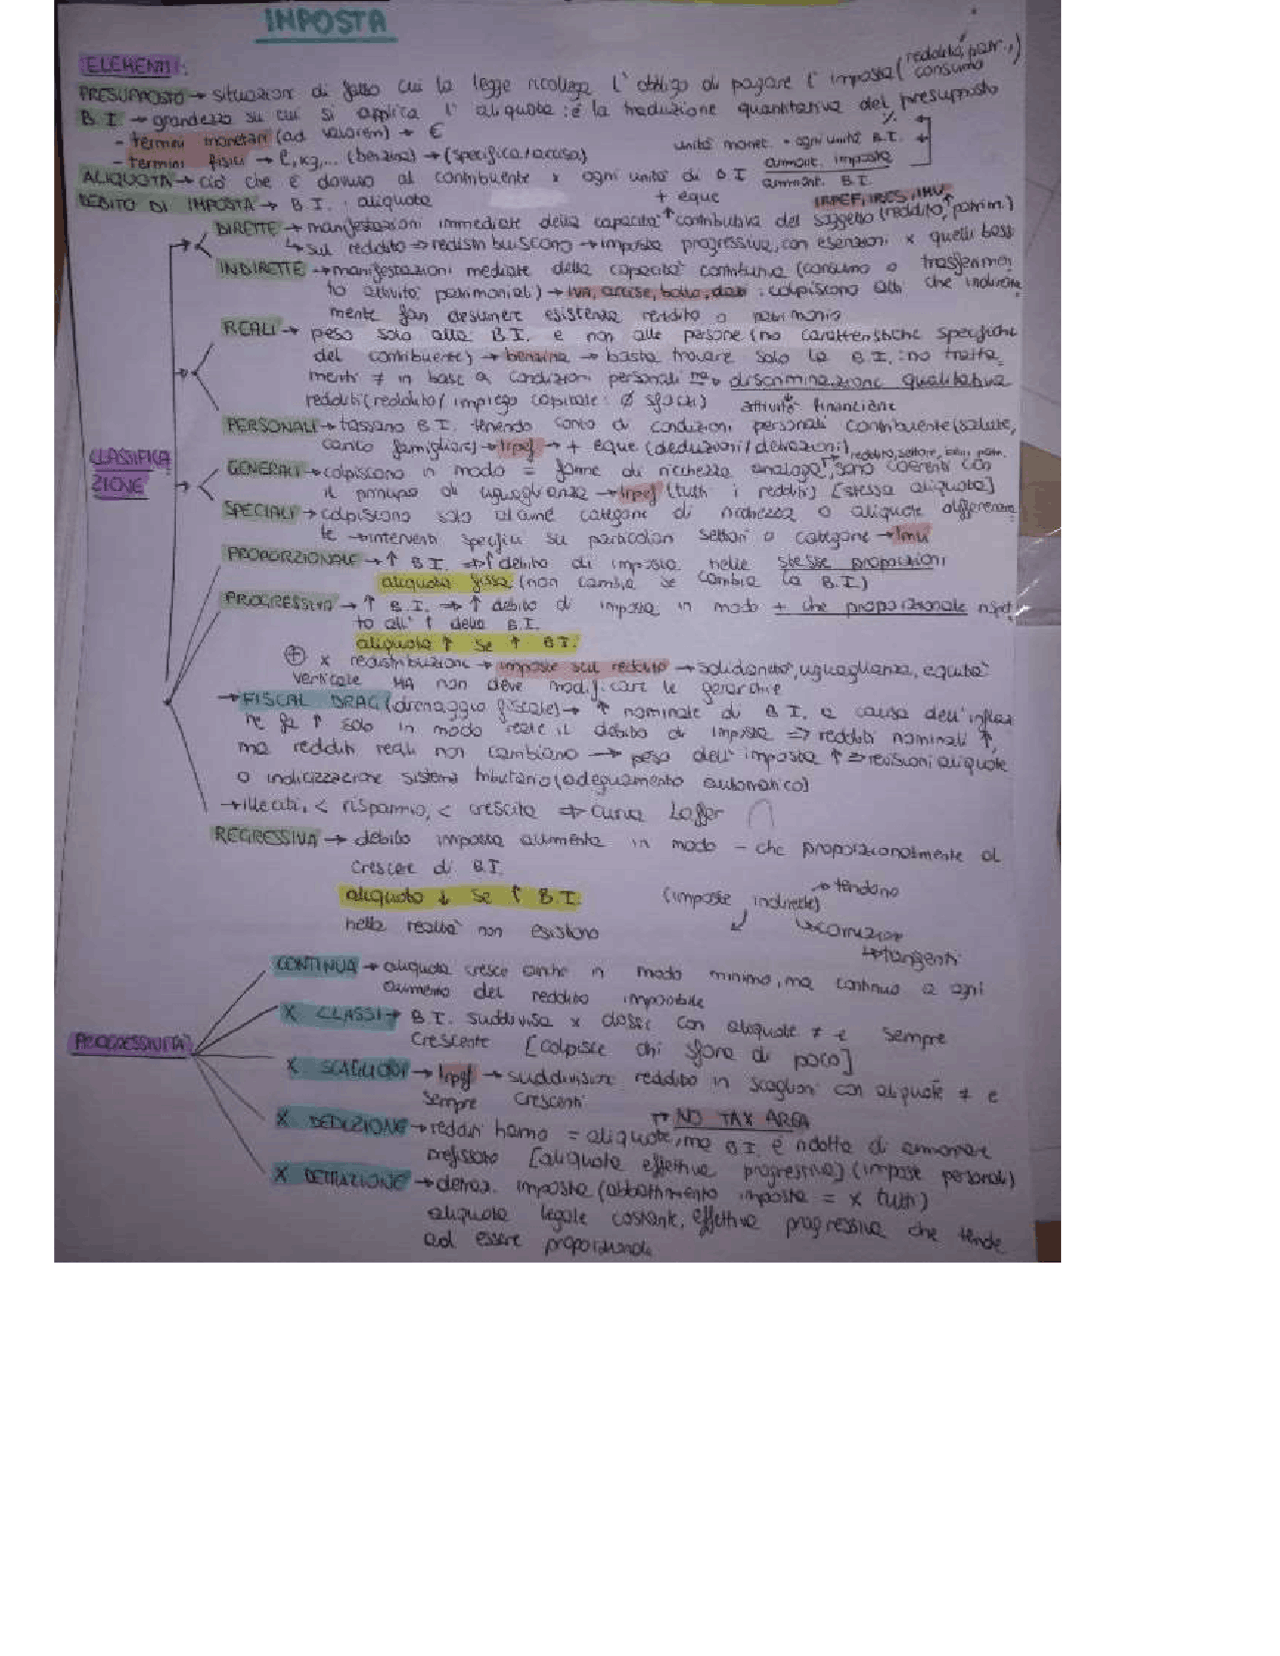 IMPOSTA
ELEMENTI:
PRESUPPOSTO → situazioni di fatto cui la legge ricollega l'obbligo di pagare l'imposta (reddito, patr., consumo)
B.I. → grandezza su cui si applica l'aliquota: è la traduzione quantitativa del presupposto
- termini monetari (ad valorem) → €
- termini fisici → l, kg,... (benzina) → (specifica/accisa)
% unità monet. - ogni unità B.I.
ALIQUOTA → ciò che è dovuto al contribuente x ogni unità di B I
ammont. imposta
ammont. B.I.
DEBITO DI IMPOSTA → B.I. · aliquota
+ eque
IRPEF, IRES, IMU
CLASSIFICAZIONE
DIRETTE → manifestazioni immediate della capacità contributiva del soggetto (reddito, patrim.)
↳ sul reddito → redistribuiscono → imposta progressiva, con esenzioni x quelli bassi
INDIRETTE → manifestazioni mediate della capacità contributiva (consumo o trasferimen
to attività patrimoniali) → IVA, accise, bollo, dazi : colpiscono atti che indiretta
mente fan desumere esistenza reddito o patrimonio
REALI → peso solo alla B.I. e non alle persone (no caratteristiche specifiche
del contribuente) → benzina → basta trovare solo la B.I.: no tratta
menti ≠ in base a condizioni personali ma discriminazione qualitativa
redditi (reddito/impiego capitale: Ø sforzi) attività finanziarie
PERSONALI → tassano B.I. tenendo conto di condizioni personali contribuente (salute,
carico famigliare) → Irpef → + eque (deduzioni/detrazioni)
GENERALI → colpiscono in modo = forme di ricchezza analoga, sono coerenti con
reddito, settore, beni patr.
il principio di uguaglianza → Irpef (tutti i redditi) [stessa aliquota]
SPECIALI → colpiscono solo alcune categorie di ricchezza o aliquote differenzia
te → interventi specifici su particolari settori o categorie → Imu
PROPORZIONALE → ↑ B.I. ⇒ ↑ debito di imposta nelle stesse proporzioni
aliquota fissa (non cambia se cambia la B.I.)
PROGRESSIVA → ↑ B.I. ⇒ ↑ debito di imposta in modo + che proporzionale rispet
to all' ↑ della B.I.
aliquota ↑ se ↑ B.I.
⊕ x redistribuzione → imposte sul reddito → solidarietà, uguaglianza, equità
verticale MA non deve modificare le gerarchie
→ FISCAL DRAG (drenaggio fiscale) → ↑ nominale di B.I. a causa dell'inflazio
ne fa ↑ solo in modo reale il debito di imposta ⇒ redditi nominali ↑,
ma redditi reali non cambiano → peso dell'imposta ↑ ⇒ revisioni aliquote
o indicizzazione sistema tributario (adeguamento automatico)
→ illeciti, < risparmio, < crescita ⇒ curva Laffer
REGRESSIVA → debito imposta aumenta in modo - che proporzionalmente al
crescere di B.I.
aliquota ↓ se ↑ B.I.
(imposte indirette) → tendono
nella realtà non esistono
↳ corruzioni
↳ tangenti
PROGRESSIVITÀ
CONTINUA → aliquota cresce anche in modo minimo, ma continuo a ogni
aumento del reddito imponibile
X CLASSI → B.I. suddivisa x classi con aliquote ≠ e sempre
crescente [colpisce chi sfora di poco]
X SCAGLIONI → Irpef → suddivisione reddito in scaglioni con aliquote ≠ e
sempre crescenti
NO TAX AREA
X DEDUZIONE → redditi hanno = aliquote, ma B.I. è ridotta di ammontare
prefissato [aliquota effettiva progressiva] (imposte personali)
X DETRAZIONE → detraz. imposta (abbattimento imposta = x tutti)
aliquota legale costante, effettiva progressiva che tende
ad essere proporzionale